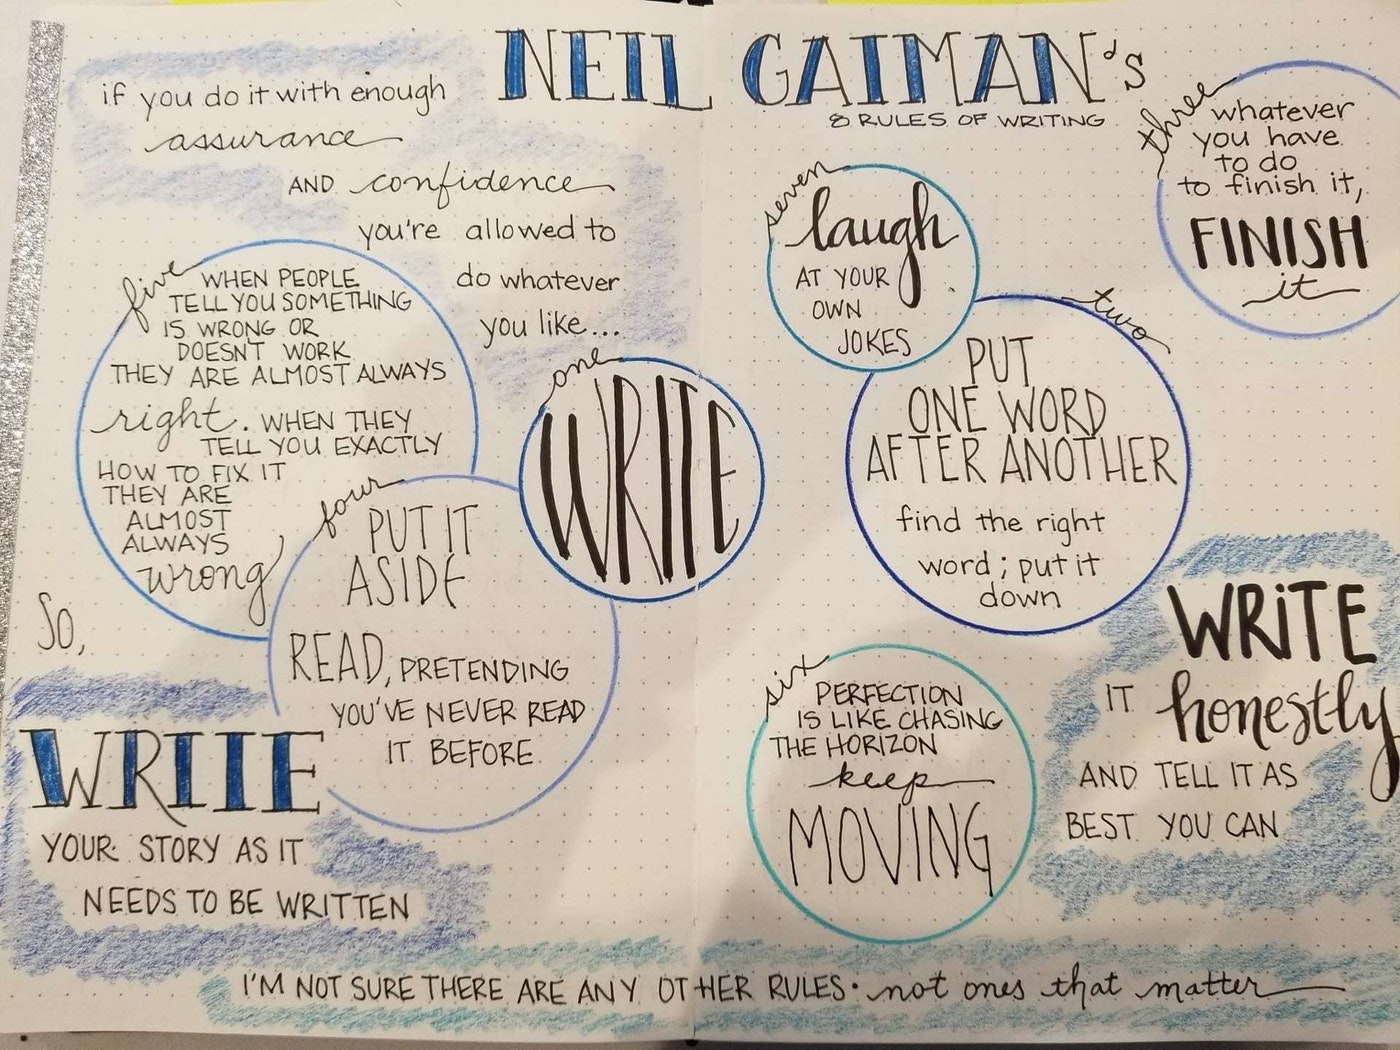 NEIL GAIMAN's
8 RULES OF WRITING
if you do it with enough
assurance
AND confidence
you're allowed to
do whatever
you like...
one
WRITE
five
WHEN PEOPLE
TELL YOU SOMETHING
IS WRONG OR
DOESN'T WORK
THEY ARE ALMOST ALWAYS
right. WHEN THEY
TELL YOU EXACTLY
HOW TO FIX IT
THEY ARE
ALMOST
ALWAYS
wrong
four
PUT IT
ASIDE
READ, PRETENDING
YOU'VE NEVER READ
IT BEFORE
So,
WRITE
YOUR STORY AS IT
NEEDS TO BE WRITTEN
seven
laugh
AT YOUR
OWN
JOKES
three
whatever
you have
to do
to finish it,
FINISH
it
two
PUT
ONE WORD
AFTER ANOTHER
find the right
word; put it
down
six
PERFECTION
IS LIKE CHASING
THE HORIZON
keep
MOVING
WRiTE
IT honestly
AND TELL IT AS
BEST YOU CAN
I'M NOT SURE THERE ARE ANY OTHER RULES. not ones that matter